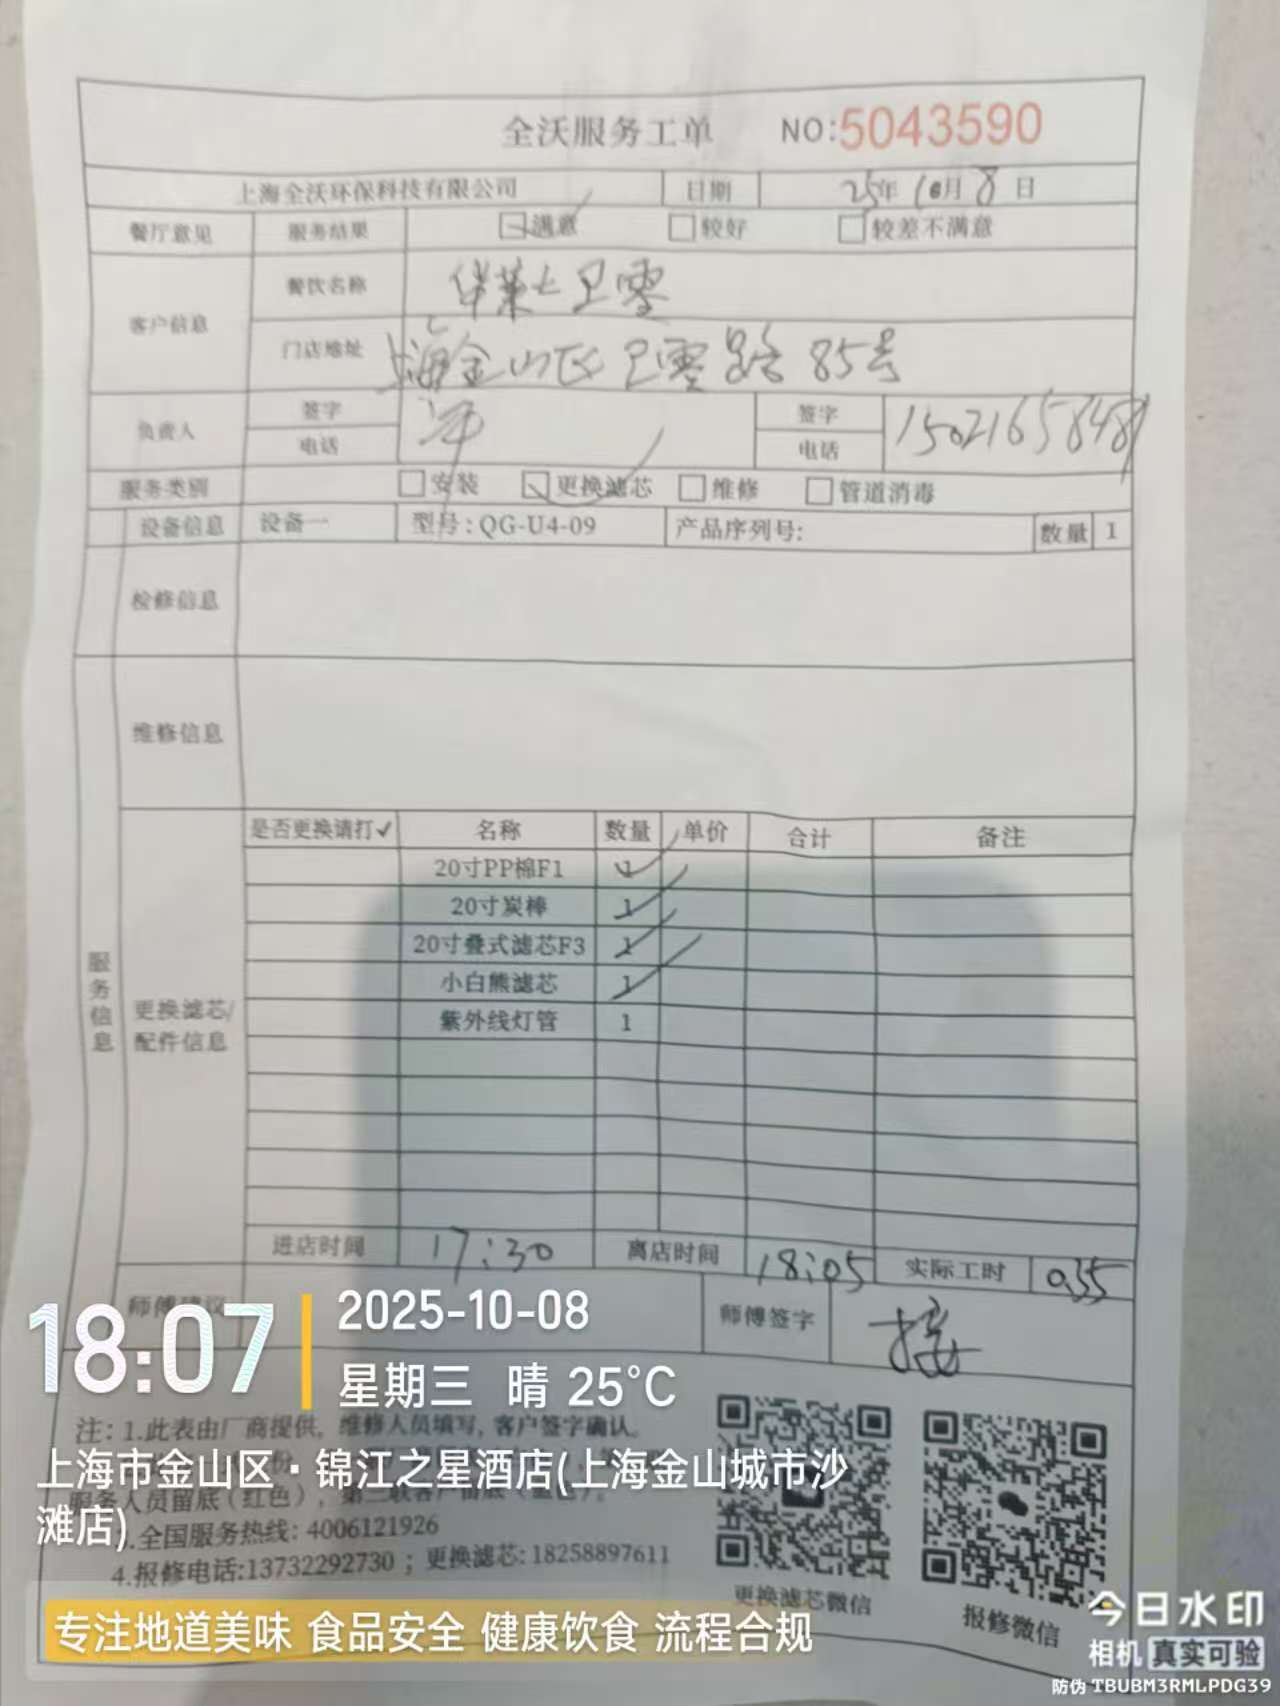 全沃服务工单 NO:5043590
上海全沃环保科技有限公司 日期 25年10月8日
餐厅意见 服务结果 满意 较好 较差不满意
客户信息 餐饮名称 华莱士卫零
门店地址 上海金山区卫零路85号
负责人 签字 签字
电话 电话 15021658489
服务类别 安装 更换滤芯 维修 管道消毒
设备信息 设备一 型号:QG-U4-09 产品序列号: 数量 1
检修信息
维修信息
服务信息
更换滤芯/
配件信息
是否更换请打✓ 名称 数量 单价 合计 备注
20寸PP棉F1 1
20寸炭棒 1
20寸叠式滤芯F3 1
小白熊滤芯 1
紫外线灯管 1
进店时间 17:30 离店时间 18:05 实际工时 0.35
师傅建议 师傅签字
18:07
2025-10-08
星期三 晴 25°C
注: 1.此表由厂商提供, 维修人员填写, 客户签字确认。
上海市金山区·锦江之星酒店(上海金山城市沙
滩店)
服务人员留底(红色), 第三联客户留底
3.全国服务热线: 4006121926
4.报修电话:13732292730 ; 更换滤芯: 18258897611
更换滤芯微信
报修微信
专注地道美味 食品安全 健康饮食 流程合规
今日水印
相机 真实可验
防伪 TBUBM3RMLPDG39